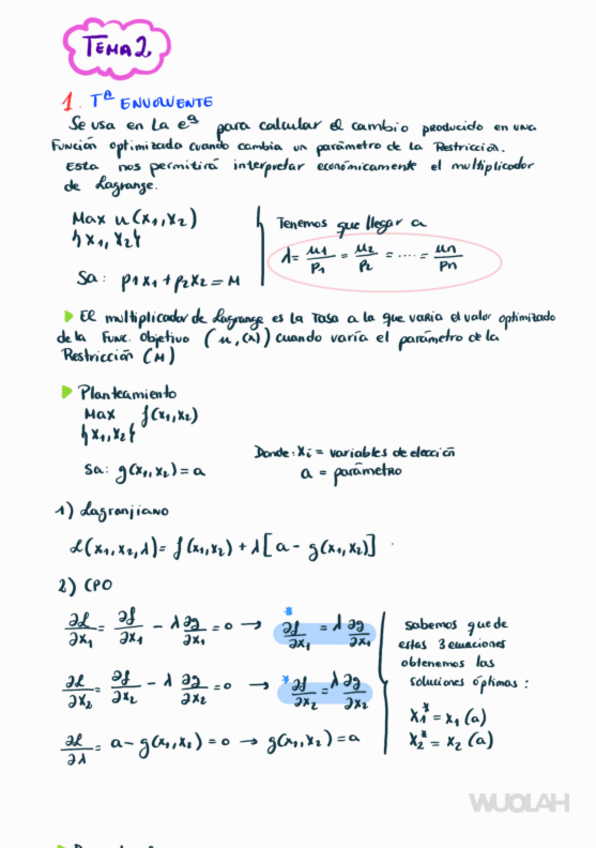 TEMA 2
1. Tª ENVOLVENTE
Se usa en la eª para calcular el cambio producido en una
Función optimizada cuando cambia un parámetro de la Restricción.
Esta nos permitirá interpretar económicamente el multiplicador
de Lagrange.
Max u(x₁,x₂)
{x₁,x₂}
Sa: p₁x₁ + p₂x₂ = M
Tenemos que llegar a
λ = u₁/p₁ = u₂/p₂ = .... = un/pn
El multiplicador de Lagrange es la Tasa a la que varía el valor optimizado
de la Func. Objetivo cuando varía el parámetro de la
Restricción (M)
Planteamiento
Max f(x₁,x₂)
{x₁,x₂}
Sa: g(x₁,x₂) = a
Donde: xi = variables de elección
a = parámetro
1) Lagranjiano
L(x₁,x₂,λ) = f(x₁,x₂) + λ[a - g(x₁,x₂)]
2) CPO
∂L/∂x₁ = ∂f/∂x₁ - λ ∂g/∂x₁ = 0 → * ∂f/∂x₁ = λ ∂g/∂x₁
∂L/∂x₂ = ∂f/∂x₂ - λ ∂g/∂x₂ = 0 → * ∂f/∂x₂ = λ ∂g/∂x₂
∂L/∂λ = a - g(x₁,x₂) = 0 → g(x₁,x₂) = a
Sabemos que de
estas 3 ecuaciones
obtenemos las
soluciones óptimas:
x₁* = x₁(a)
x₂* = x₂(a)
WUOLAH